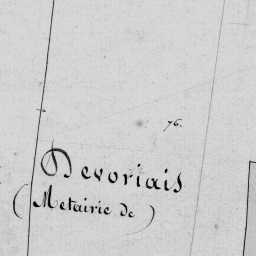 76.
Devoriais
(Metairie de)